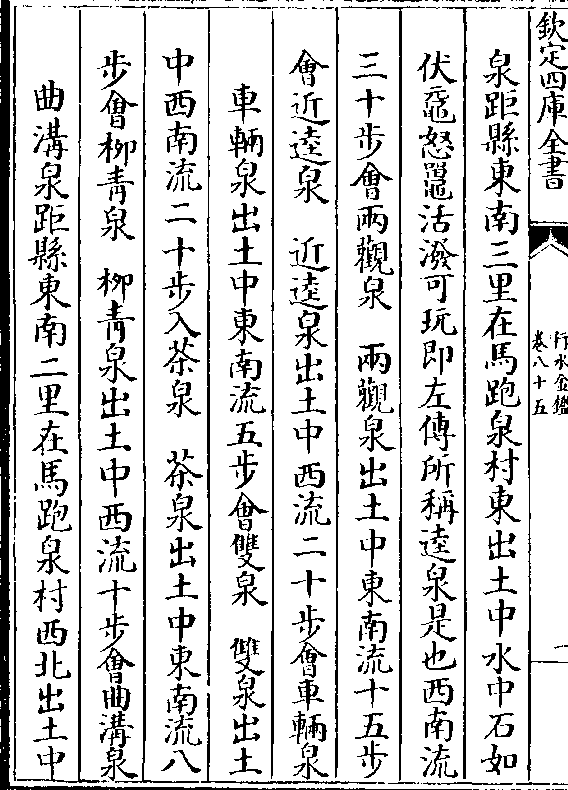 欽定四庫全書
行水金鑑
卷八十五
一
泉距縣東南三里在馬跑泉村東出土中水中石如
伏黿怒鼉活潑可玩即左傳所稱逵泉是也西南流
三十步會兩觀泉　兩觀泉出土中東南流十五步
會近逵泉　近逵泉出土中西流二十步會車輛泉
車輛泉出土中東南流五步會雙泉　雙泉出土
中西南流二十步入茶泉　茶泉出土中東南流八
步會柳青泉　柳青泉出土中西流十步會曲溝泉
曲溝泉距縣東南二里在馬跑泉村西北出土中